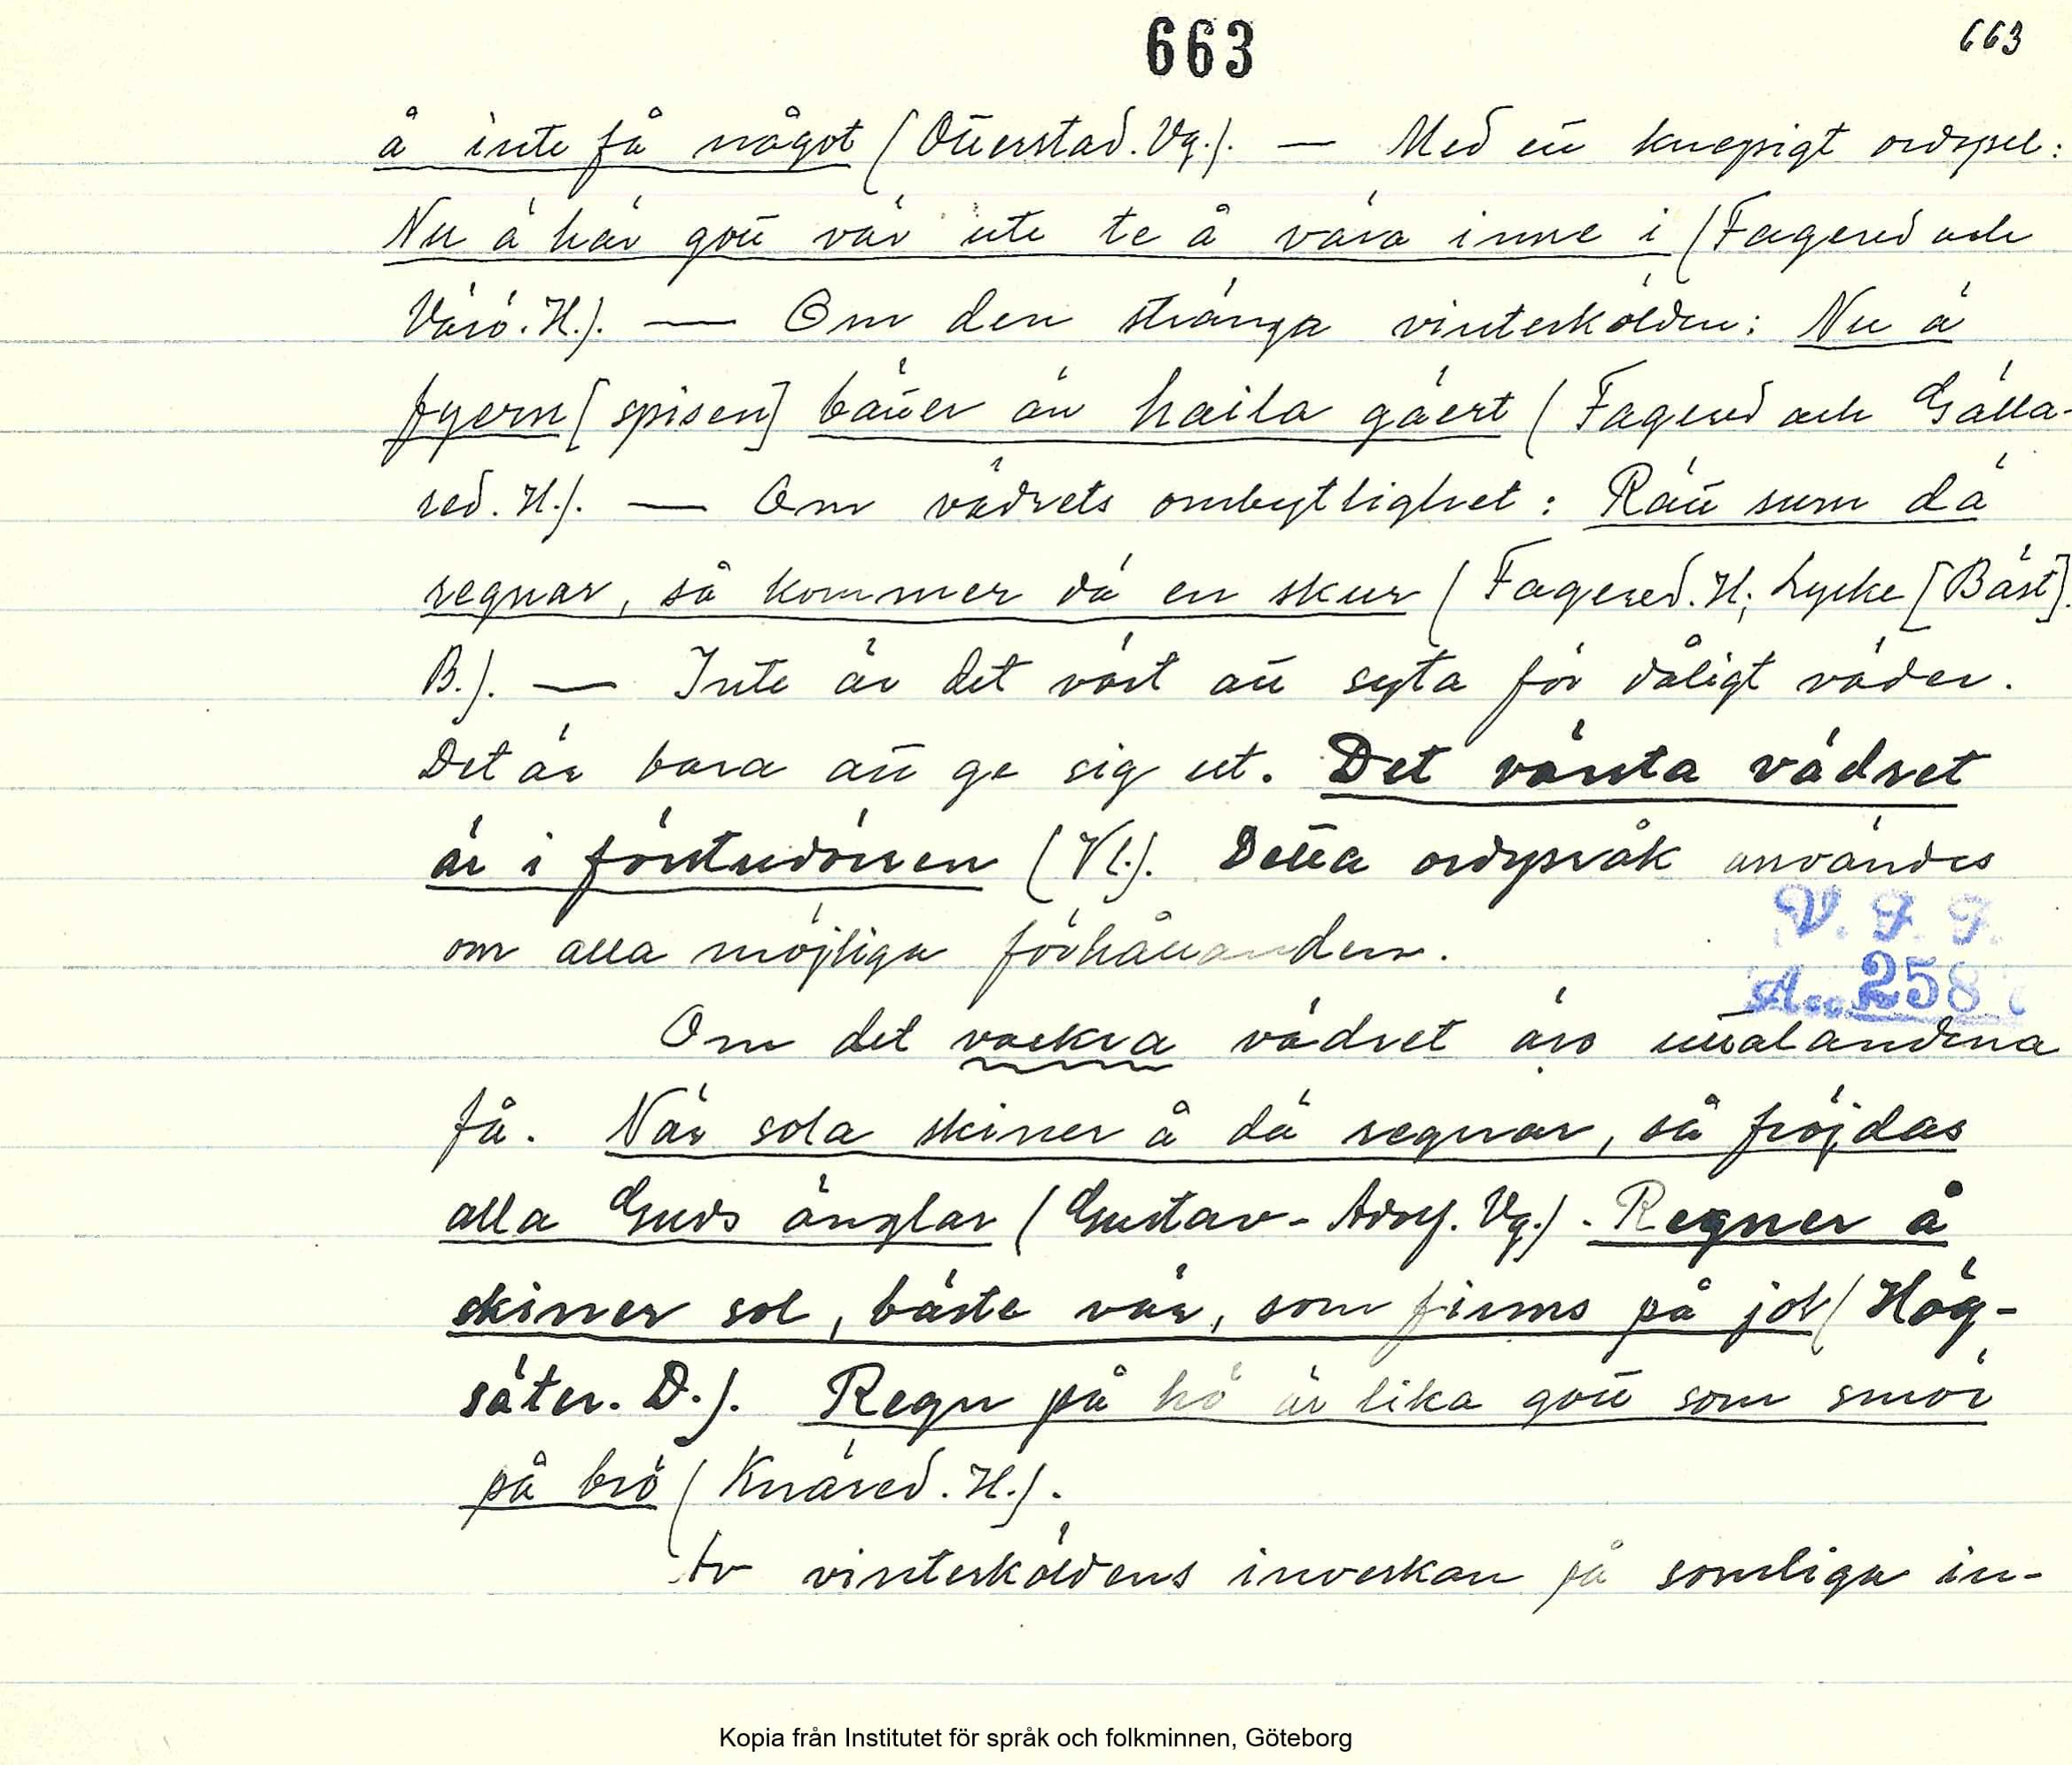 663
663
å inte få något (Otterstad. Vg.). — Med ett knepigt ordspel:
Nu ä här gott vär ute te å vara inne i (Fagered och
Värö. H.). — Om den stränga vinterkölden: Nu ä
fyern [spisen] bätter än haila gäert (Fagered och Gälla-
red. H.). — Om vädrets ombytlighet: Rätt sum dä
regnar, så kommer dä en skur (Fagered. H; Lycke [Bäst].
B.). — Inte är det värt att syta för dåligt väder.
Det är bara att ge sig ut. Det värsta vädret
är i förstudörren (Vl.). Detta ordspråk användes
om alla möjliga förhållanden.
V. F. F.
Acc. 258
Om det vackra vädret äro uttalandena
få. När sola skiner å dä regnar, så fröjdas
alla Guds änglar (Gustav-Adolf. Vg.). Regner å
skiner sol, bäste vär, som finns på jol (Hög-
säter. D.). Regn på hö är lika gott som smör
på brö (Knäred. H.).
Av vinterköldens inverkan på somliga in-
Kopia från Institutet för språk och folkminnen, Göteborg